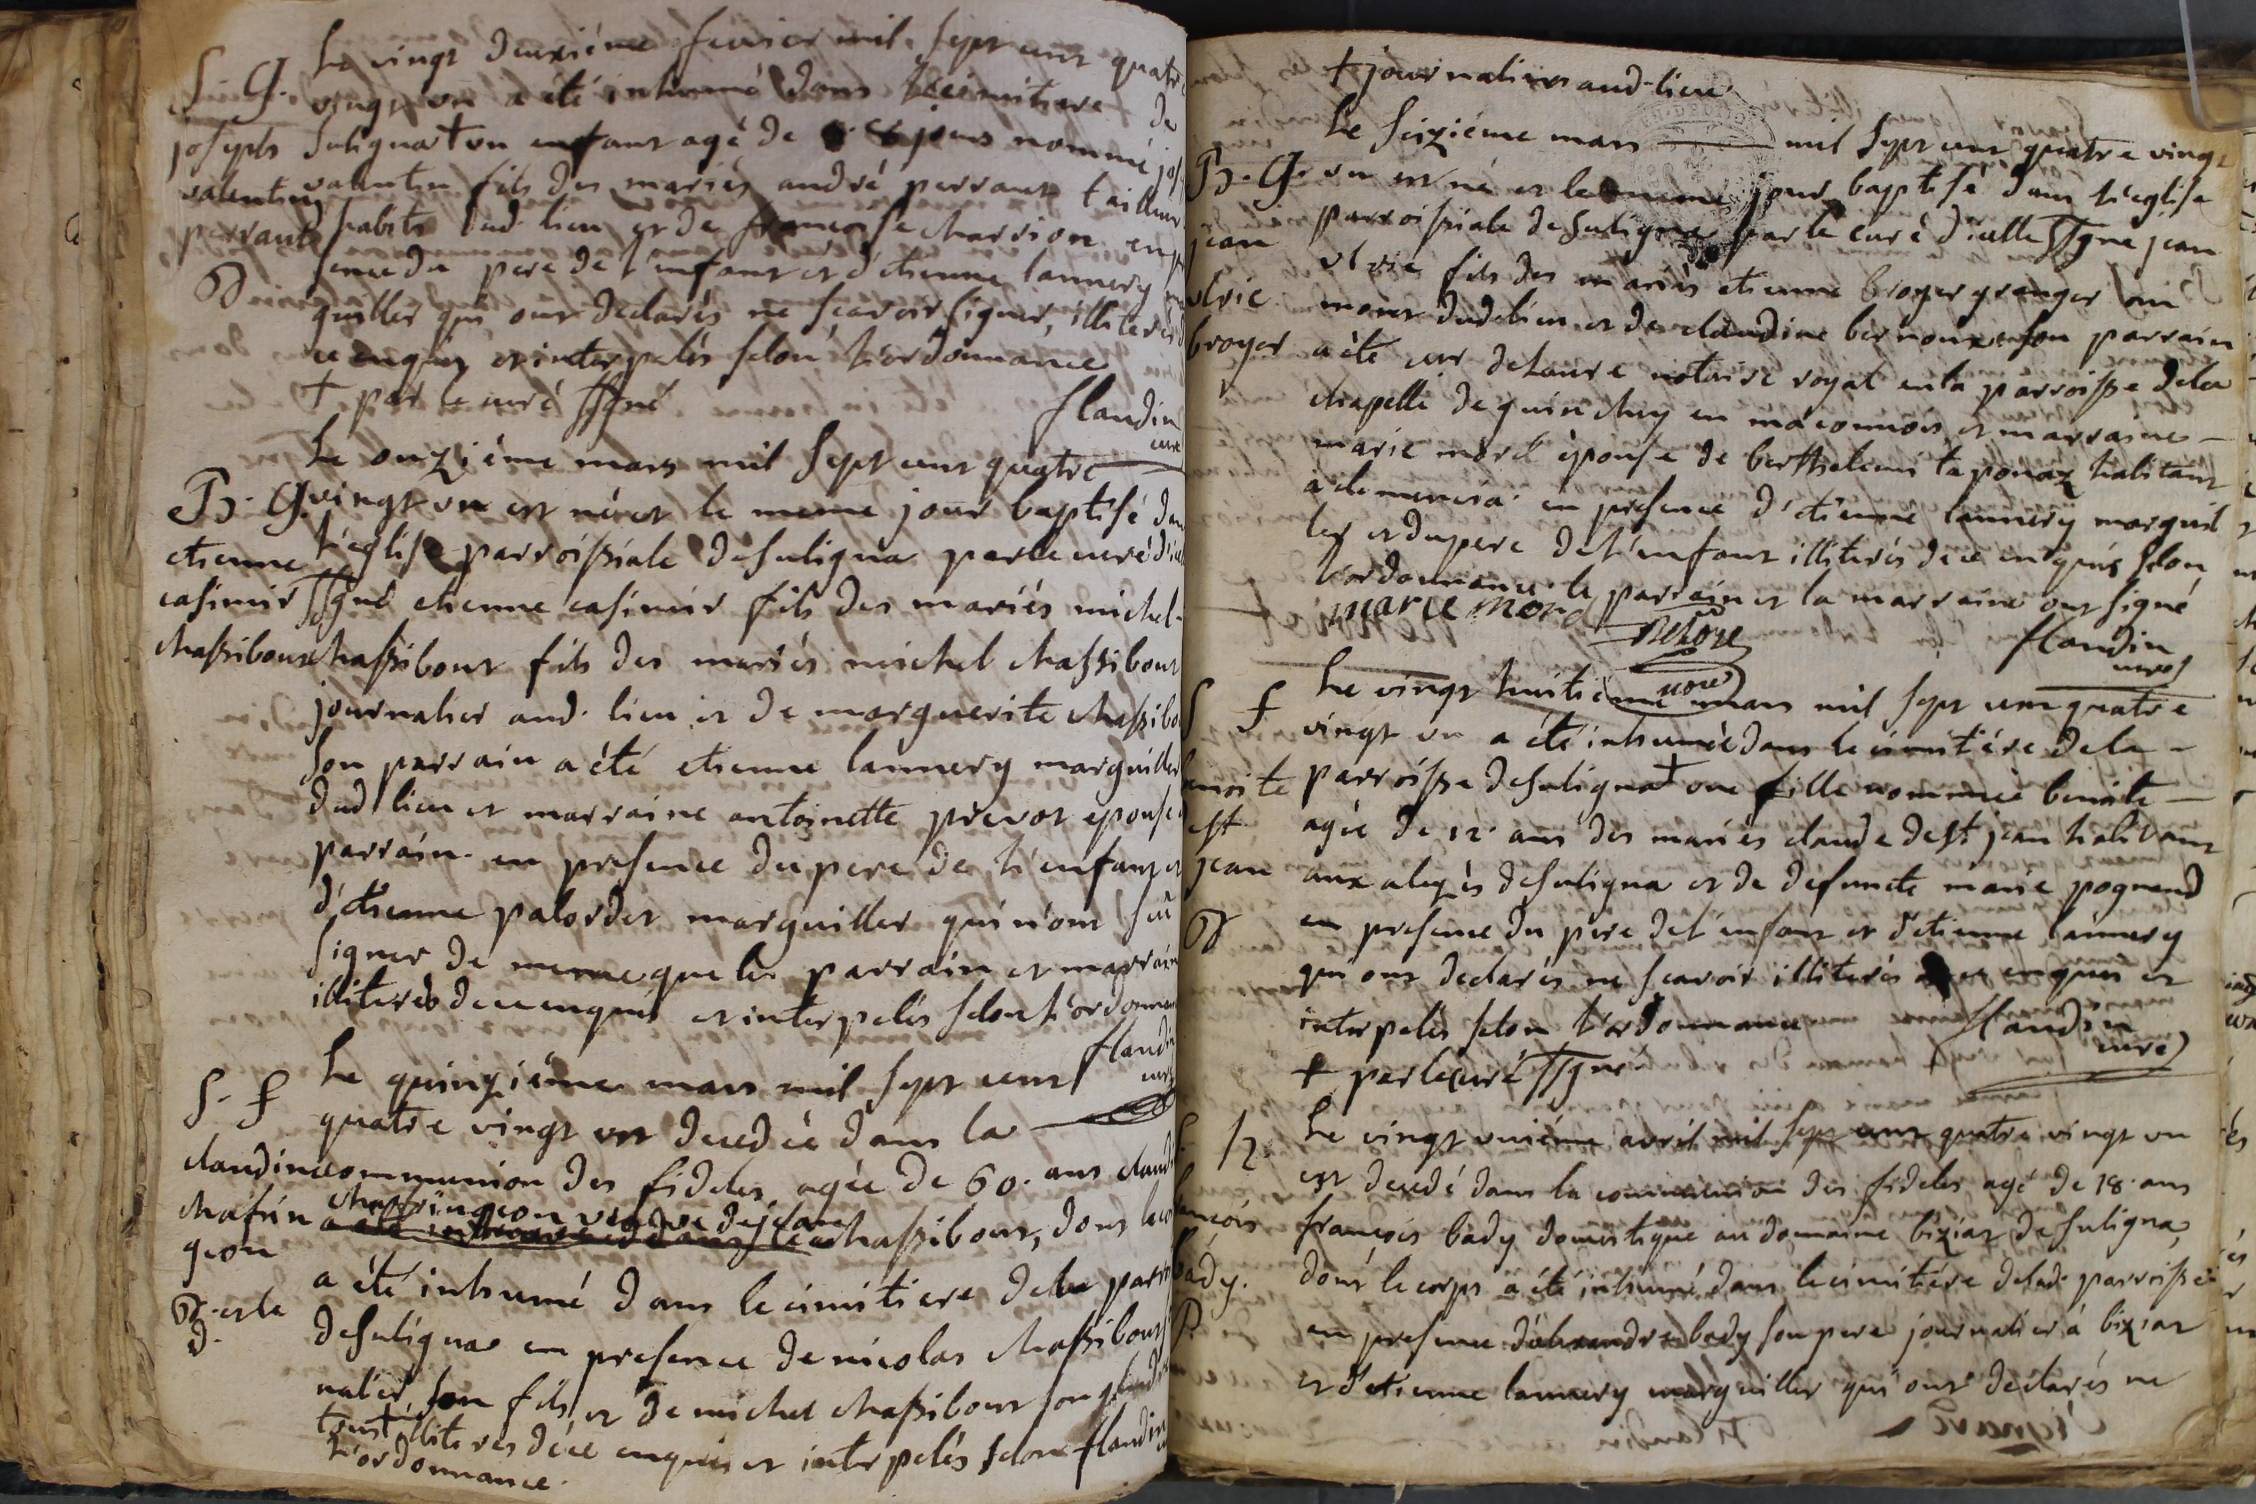 Le vingt deuxiéme fevrier mil sept cent quatre
S. G. vingt un a été inhumé dans le cimitiere de
joseph Suligna + un enfant agé de jours nommé jos
valentin valentin fils des mariés andré perraut tailleur
perraut habits dud. lieu et de francoise Marrion en pre
sence du pere de l'enfant et d'etienne lannery mar
guiller qui ont declarés ne scavoir signer, illiterés d
ce enquis et interpelés selon l'ordonnance
+ par le curé ssgné
flandin
curé
Le onziéme mars mil sept cent quatre
B. G. vingt un est né et le meme jour baptisé dans
etienne l'eglise parroissiale de Suligna par le curé d'icelle
casimir ssgné etienne casimir fils des mariés michel
chassibout chassibout fils des mariés michel chassibout
journalier aud. lieu et de marguerite chassibout
Son parrain a été etienne lannery marguiller
dud lieu et marraine antoinette prevot epouse
parrain en presence du pere de l'enfant et
d'etienne palordet marguiller qui n'ont sçu
signer de meme que les parrain et marraine
illiterés de ce enquis et interpelés selon l'ordonnance
flandin
curé
Le quinziéme mars mil sept cent
S. f quatre vingt un decedée dans la
claudine communion des fideles agée de 60. ans claudine
chaffringeon veuve de jean
chafrin chassibout, dont le corps
geon
a été inhumé dans le cimitiere de la parroisse
de Suligna en presence de nicolas chassibout jour
nalier son fils, et de michel chassibout son gendre
tous illiterés de ce enquis et interpelés selon
l'ordonnance.
flandin
+ journalier aud. lieu
Le Seiziéme mars mil sept cent quatre vingt
B. G. un est né et le meme jour baptisé dans l'eglise
jean parroissiale de Suligna par le curé d'icelle ssgné jean
ulric ulric fils des mariés etienne broyer granger
broyer dud lieu et de claudine bernoux son parrain
a été delaure notaire royal en la parroisse de la
chapelle de guinchay en maconnois et marraine
marie morel épouse de berthelemi taponat habitant
à clemencia en presence d'etienne lannery marguil
ler et du pere de l'enfant illiterés de ce enquis selon
l'ordonnance. le parrain et la marraine ont signé
marie morel
Delore
flandin
curé
Le vingt huitiéme mars mil sept cent quatre
S f vingt un a été inhumée dans le cimitiére de la
benoite parroisse de Suligna + une fille nommée benoite
de st agée de 12. ans des mariés claude de st jean habitant
jean aux alegés de Suligna et de defuncte marie pognend
en presence du pere de l'enfant et d'etienne lannery
qui ont declarés ne scavoir illiterés de ce enquis et
interpelés selon l'ordonnance
flandin
curé
+ par le curé ssgné
Le vingt uniéme avril mil sept cent quatre vingt un
est decedé dans la communion des fideles agé de 18. ans
françois françois bady domestique au domaine biziat de Suligna,
bady. dont le corps a été inhumé dans le cimitiére de lad. parroisse
en presence d'alexandre bady son pere journalier à biziat
et d'etienne lannery marguiller qui ont declarés ne